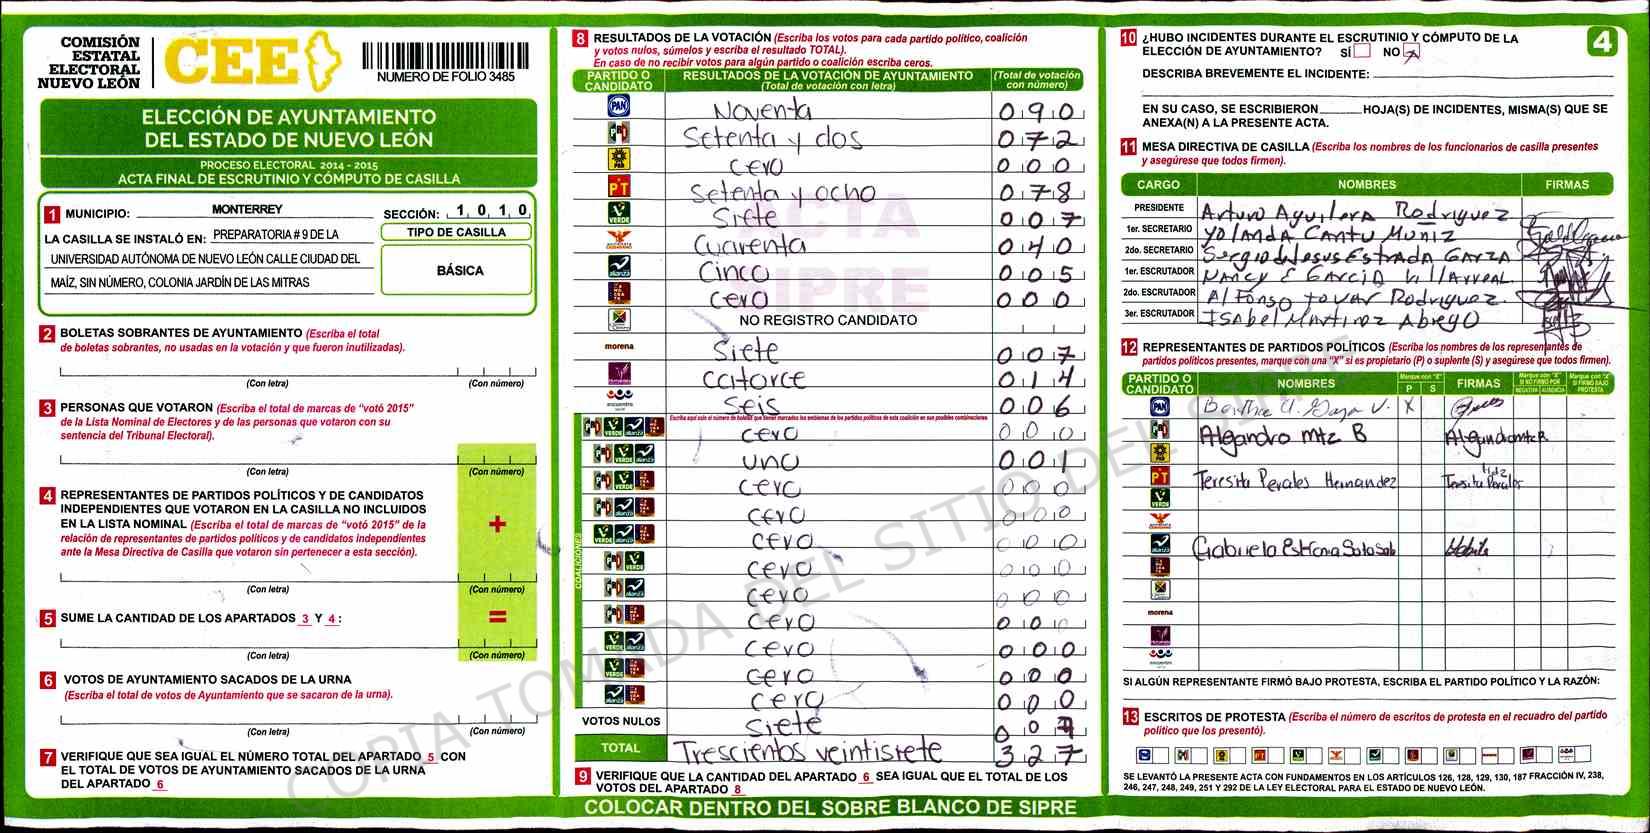 COMISIÓN
ESTATAL
ELECTORAL
NUEVO LEÓN
CEE
NUMERO DE FOLIO 3485
ELECCIÓN DE AYUNTAMIENTO
DEL ESTADO DE NUEVO LEÓN
PROCESO ELECTORAL 2014 - 2015
ACTA FINAL DE ESCRUTINIO Y CÓMPUTO DE CASILLA
1 MUNICIPIO: MONTERREY SECCIÓN: 1 0 1 0
LA CASILLA SE INSTALÓ EN: PREPARATORIA # 9 DE LA
UNIVERSIDAD AUTÓNOMA DE NUEVO LEÓN CALLE CIUDAD DEL
MAÍZ, SIN NÚMERO, COLONIA JARDÍN DE LAS MITRAS
TIPO DE CASILLA
BÁSICA
2 BOLETAS SOBRANTES DE AYUNTAMIENTO (Escriba el total
de boletas sobrantes, no usadas en la votación y que fueron inutilizadas).
(Con letra) (Con número)
3 PERSONAS QUE VOTARON (Escriba el total de marcas de “votó 2015”
de la Lista Nominal de Electores y de las personas que votaron con su
sentencia del Tribunal Electoral).
(Con letra) (Con número)
4 REPRESENTANTES DE PARTIDOS POLÍTICOS Y DE CANDIDATOS
INDEPENDIENTES QUE VOTARON EN LA CASILLA NO INCLUIDOS
EN LA LISTA NOMINAL (Escriba el total de marcas de “votó 2015” de la
relación de representantes de partidos políticos y de candidatos independientes
ante la Mesa Directiva de Casilla que votaron sin pertenecer a esta sección).
+
(Con letra) (Con número)
5 SUME LA CANTIDAD DE LOS APARTADOS 3 Y 4 :
=
(Con letra) (Con número)
6 VOTOS DE AYUNTAMIENTO SACADOS DE LA URNA
(Escriba el total de votos de Ayuntamiento que se sacaron de la urna).
(Con letra) (Con número)
7 VERIFIQUE QUE SEA IGUAL EL NÚMERO TOTAL DEL APARTADO 5 CON
EL TOTAL DE VOTOS DE AYUNTAMIENTO SACADOS DE LA URNA
DEL APARTADO 6
8 RESULTADOS DE LA VOTACIÓN (Escriba los votos para cada partido político, coalición
y votos nulos, súmelos y escriba el resultado TOTAL).
En caso de no recibir votos para algún partido o coalición escriba ceros.
PARTIDO O
CANDIDATO
RESULTADOS DE LA VOTACIÓN DE AYUNTAMIENTO
(Total de votación con letra)
(Total de votación
con número)
PAN Noventa 0 9 0
Setenta y dos 0 7 2
cero 0 0 0
PT Setenta y ocho 0 7 8
VERDE Siete 0 0 7
Cuarenta 0 4 0
alianza Cinco 0 0 5
cero 0 0 0
NO REGISTRO CANDIDATO
morena Siete 0 0 7
catorce 0 1 4
encuentro Seis 0 0 6
Escriba aquí solo el número de boletas que tienen marcados los emblemas de los partidos políticos de esta coalición en sus posibles combinaciones
COALICIONES
cero 0 0 0
uno 0 0 1
cero 0 0 0
cero 0 0 0
cero 0 0 0
cero 0 0 0
cero 0 0 0
cero 0 0 0
cero 0 0 0
cero 0 0 0
cero 0 0 0
VOTOS NULOS siete 0 0 7
TOTAL Trescientos veintisiete 3 2 7
9 VERIFIQUE QUE LA CANTIDAD DEL APARTADO 6 SEA IGUAL QUE EL TOTAL DE LOS
VOTOS DEL APARTADO 8
COLOCAR DENTRO DEL SOBRE BLANCO DE SIPRE
ACTA
SIPRE
COPIA TOMADA DEL SITIO DEL SIPRE
10 ¿HUBO INCIDENTES DURANTE EL ESCRUTINIO Y CÓMPUTO DE LA
ELECCIÓN DE AYUNTAMIENTO? SÍ NO X
4
DESCRIBA BREVEMENTE EL INCIDENTE:
EN SU CASO, SE ESCRIBIERON HOJA(S) DE INCIDENTES, MISMA(S) QUE SE
ANEXA(N) A LA PRESENTE ACTA.
11 MESA DIRECTIVA DE CASILLA (Escriba los nombres de los funcionarios de casilla presentes
y asegúrese que todos firmen).
CARGO NOMBRES FIRMAS
PRESIDENTE Arturo Aguilera Rodriguez
1er. SECRETARIO Yolanda Cantu Muniz
2do. SECRETARIO Sergio de Jesus Estrada Garza
1er. ESCRUTADOR Nancy E Garcia Villarreal
2do. ESCRUTADOR Alfonso Tovar Rodriguez
3er. ESCRUTADOR Isabel Martinez Abrego
12 REPRESENTANTES DE PARTIDOS POLÍTICOS (Escriba los nombres de los representantes de
partidos políticos presentes, marque con una “X” si es propietario (P) o suplente (S) y asegúrese que todos firmen).
PARTIDO O
CANDIDATO
NOMBRES
Marque con “X”
P S
FIRMAS
Marque con “X”
SI NO FIRMÓ POR
NEGATIVA AUSENCIA
Marque con “X”
SI FIRMÓ BAJO
PROTESTA
PAN Bertha X
Alejandro mtz B
PT Teresita Perales Hernandez Teresita Perales Hdz
VERDE
Gabriela
morena
encuentro
SI ALGÚN REPRESENTANTE FIRMÓ BAJO PROTESTA, ESCRIBA EL PARTIDO POLÍTICO Y LA RAZÓN:
13 ESCRITOS DE PROTESTA (Escriba el número de escritos de protesta en el recuadro del partido
político que los presentó).
SE LEVANTÓ LA PRESENTE ACTA CON FUNDAMENTOS EN LOS ARTÍCULOS 126, 128, 129, 130, 187 FRACCIÓN IV, 238,
246, 247, 248, 249, 251 Y 292 DE LA LEY ELECTORAL PARA EL ESTADO DE NUEVO LEÓN.